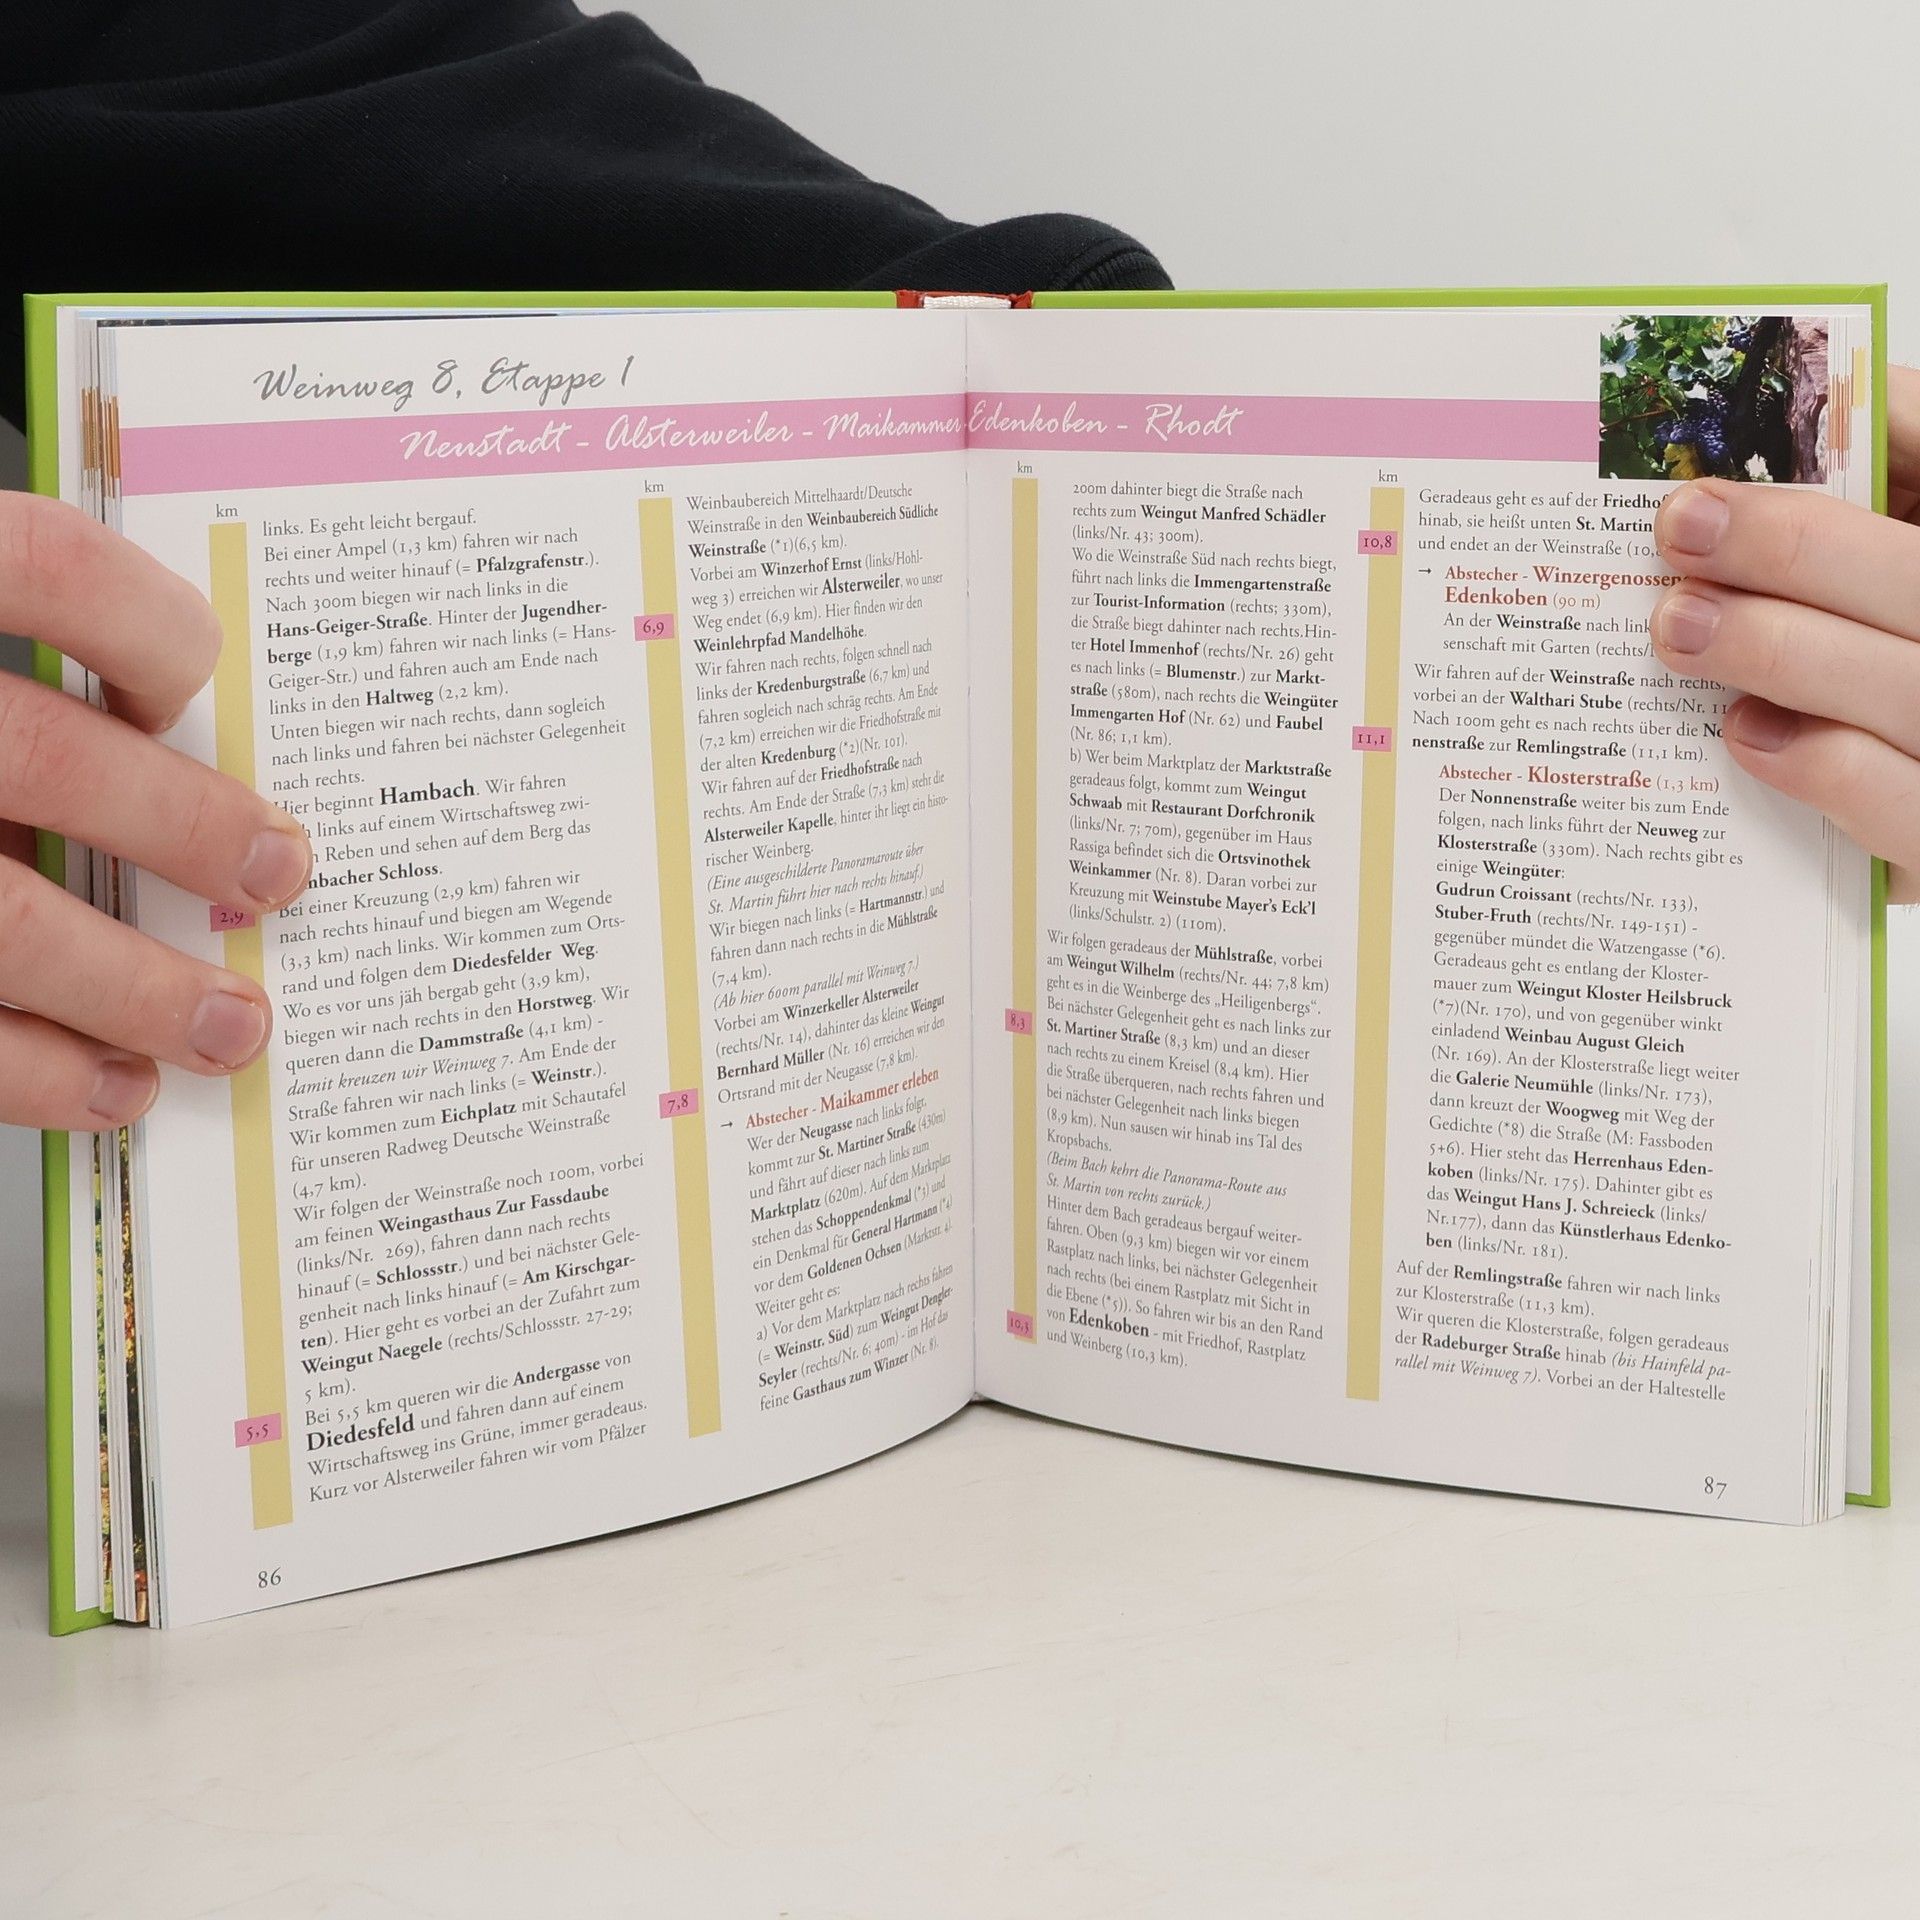 Weinweg 8, Etappe 1
Neustadt - Alsterweiler - Maikammer-Edenkoben - Rhodt
km
links. Es geht leicht bergauf.
Bei einer Ampel (1,3 km) fahren wir nach
rechts und weiter hinauf (= Pfalzgrafenstr.).
Nach 300m biegen wir nach links in die
Hans-Geiger-Straße. Hinter der Jugendher-
berge (1,9 km) fahren wir nach links (= Hans-
Geiger-Str.) und fahren auch am Ende nach
links in den Haltweg (2,2 km).
Unten biegen wir nach rechts, dann sogleich
nach links und fahren bei nächster Gelegenheit
nach rechts.
Hier beginnt Hambach. Wir fahren
links auf einem Wirtschaftsweg zwi-
Reben und sehen auf dem Berg das
Schloss.
2,9
Bei einer Kreuzung (2,9 km) fahren wir
nach rechts hinauf und biegen am Wegende
(3,3 km) nach links. Wir kommen zum Orts-
rand und folgen dem Diedesfelder Weg.
Wo es vor uns jäh bergab geht (3,9 km),
biegen wir nach rechts in den Horstweg. Wir
queren dann die Dammstraße (4,1 km) -
damit kreuzen wir Weinweg 7. Am Ende der
Straße fahren wir nach links (= Weinstr.).
Wir kommen zum Eichplatz mit Schautafel
für unseren Radweg Deutsche Weinstraße
(4,7 km).
Wir folgen der Weinstraße noch 100m, vorbei
am feinen Weingasthaus Zur Fassdaube
(links/Nr. 269), fahren dann nach rechts
hinauf (= Schlossstr.) und bei nächster Gele-
genheit nach links hinauf (= Am Kirschgar-
ten). Hier geht es vorbei an der Zufahrt zum
Weingut Naegele (rechts/Schlossstr. 27-29;
5 km).
5,5
Bei 5,5 km queren wir die Andergasse von
Diedesfeld und fahren dann auf einem
Wirtschaftsweg ins Grüne, immer geradeaus.
Kurz vor Alsterweiler fahren wir vom Pfälzer
86
km
Weinbaubereich Mittelhaardt/Deutsche
Weinstraße in den Weinbaubereich Südliche
Weinstraße (*1)(6,5 km).
Vorbei am Winzerhof Ernst (links/Hohl-
weg 3) erreichen wir Alsterweiler, wo unser
6,9
Weg endet (6,9 km). Hier finden wir den
Weinlehrpfad Mandelhöhe.
Wir fahren nach rechts, folgen schnell nach
links der Kredenburgstraße (6,7 km) und
fahren sogleich nach schräg rechts. Am Ende
(7,2 km) erreichen wir die Friedhofstraße mit
der alten Kredenburg (*2)(Nr. 101).
Wir fahren auf der Friedhofstraße nach
rechts. Am Ende der Straße (7,3 km) steht die
Alsterweiler Kapelle, hinter ihr liegt ein histo-
rischer Weinberg.
(Eine ausgeschilderte Panoramaroute über
St. Martin führt hier nach rechts hinauf.)
Wir biegen nach links (= Hartmannstr.) und
fahren dann nach rechts in die Mühlstraße
(7,4 km).
(Ab hier 600m parallel mit Weinweg 7.)
Vorbei am Winzerkeller Alsterweiler
(rechts/Nr. 14), dahinter das kleine Weingut
Bernhard Müller (Nr. 16) erreichen wir den
7,8
Ortsrand mit der Neugasse (7,8 km).
→ Abstecher - Maikammer erleben
Wer der Neugasse nach links folgt,
kommt zur St. Martiner Straße (430m)
und fährt auf dieser nach links zum
Marktplatz (620m). Auf dem Marktplatz
stehen das Schoppendenkmal (*3) und
ein Denkmal für General Hartmann (*4)
vor dem Goldenen Ochsen (Marktstr. 4).
Weiter geht es:
a) Vor dem Marktplatz nach rechts fahren
(= Weinstr. Süd) zum Weingut Dengler-
Seyler (rechts/Nr. 6; 40m) - im Hof das
feine Gasthaus zum Winzer (Nr. 8).
km
200m dahinter biegt die Straße nach
rechts zum Weingut Manfred Schädler
(links/Nr. 43; 300m).
Wo die Weinstraße Süd nach rechts biegt,
führt nach links die Immengartenstraße
zur Tourist-Information (rechts; 330m),
die Straße biegt dahinter nach rechts.Hin-
ter Hotel Immenhof (rechts/Nr. 26) geht
es nach links (= Blumenstr.) zur Markt-
straße (580m), nach rechts die Weingüter
Immengarten Hof (Nr. 62) und Faubel
(Nr. 86; 1,1 km).
b) Wer beim Marktplatz der Marktstraße
geradeaus folgt, kommt zum Weingut
Schwaab mit Restaurant Dorfchronik
(links/Nr. 7; 70m), gegenüber im Haus
Rassiga befindet sich die Ortsvinothek
Weinkammer (Nr. 8). Daran vorbei zur
Kreuzung mit Weinstube Mayer's Eck'l
(links/Schulstr. 2) (110m).
Wir folgen geradeaus der Mühlstraße, vorbei
am Weingut Wilhelm (rechts/Nr. 44; 7,8 km)
geht es in die Weinberge des „Heiligenbergs“.
Bei nächster Gelegenheit geht es nach links zur
8,3
St. Martiner Straße (8,3 km) und an dieser
nach rechts zu einem Kreisel (8,4 km). Hier
die Straße überqueren, nach rechts fahren und
bei nächster Gelegenheit nach links biegen
(8,9 km). Nun sausen wir hinab ins Tal des
Kropsbachs.
(Beim Bach kehrt die Panorama-Route aus
St. Martin von rechts zurück.)
Hinter dem Bach geradeaus bergauf weiter-
fahren. Oben (9,3 km) biegen wir vor einem
Rastplatz nach links, bei nächster Gelegenheit
nach rechts (bei einem Rastplatz mit Sicht in
die Ebene (*5)). So fahren wir bis an den Rand
10,3
von Edenkoben - mit Friedhof, Rastplatz
und Weinberg (10,3 km).
km
Geradeaus geht es auf der
hinab, sie heißt unten St. Martin
10,8
und endet an der Weinstraße
→ Abstecher -
Edenkoben (90 m)
An der Weinstraße nach
senschaft mit Garten
Wir fahren auf der Weinstraße nach rechts,
vorbei an der Walthari Stube (rechts/Nr.
Nach 100m geht es nach rechts über die
11,1
nenstraße zur Remlingstraße (11,1 km).
Abstecher - Klosterstraße (1,3 km)
Der Nonnenstraße weiter bis zum Ende
folgen, nach links führt der Neuweg zur
Klosterstraße (330m). Nach rechts gibt es
einige Weingüter:
Gudrun Croissant (rechts/Nr. 133),
Stuber-Fruth (rechts/Nr. 149-151) -
gegenüber mündet die Watzengasse (*6).
Geradeaus geht es entlang der Kloster-
mauer zum Weingut Kloster Heilsbruck
(*7)(Nr. 170), und von gegenüber winkt
einladend Weinbau August Gleich
(Nr. 169). An der Klosterstraße liegt weiter
die Galerie Neumühle (links/Nr. 173),
dann kreuzt der Woogweg mit Weg der
Gedichte (*8) die Straße (M: Fassboden
5+6). Hier steht das Herrenhaus Eden-
koben (links/Nr. 175). Dahinter gibt es
das Weingut Hans J. Schreieck (links/
Nr.177), dann das Künstlerhaus Edenko-
ben (links/Nr. 181).
Auf der Remlingstraße fahren wir nach links
zur Klosterstraße (11,3 km).
Wir queren die Klosterstraße, folgen geradeaus
der Radeburger Straße hinab (bis Hainfeld pa-
rallel mit Weinweg 7). Vorbei an der Haltestelle
87